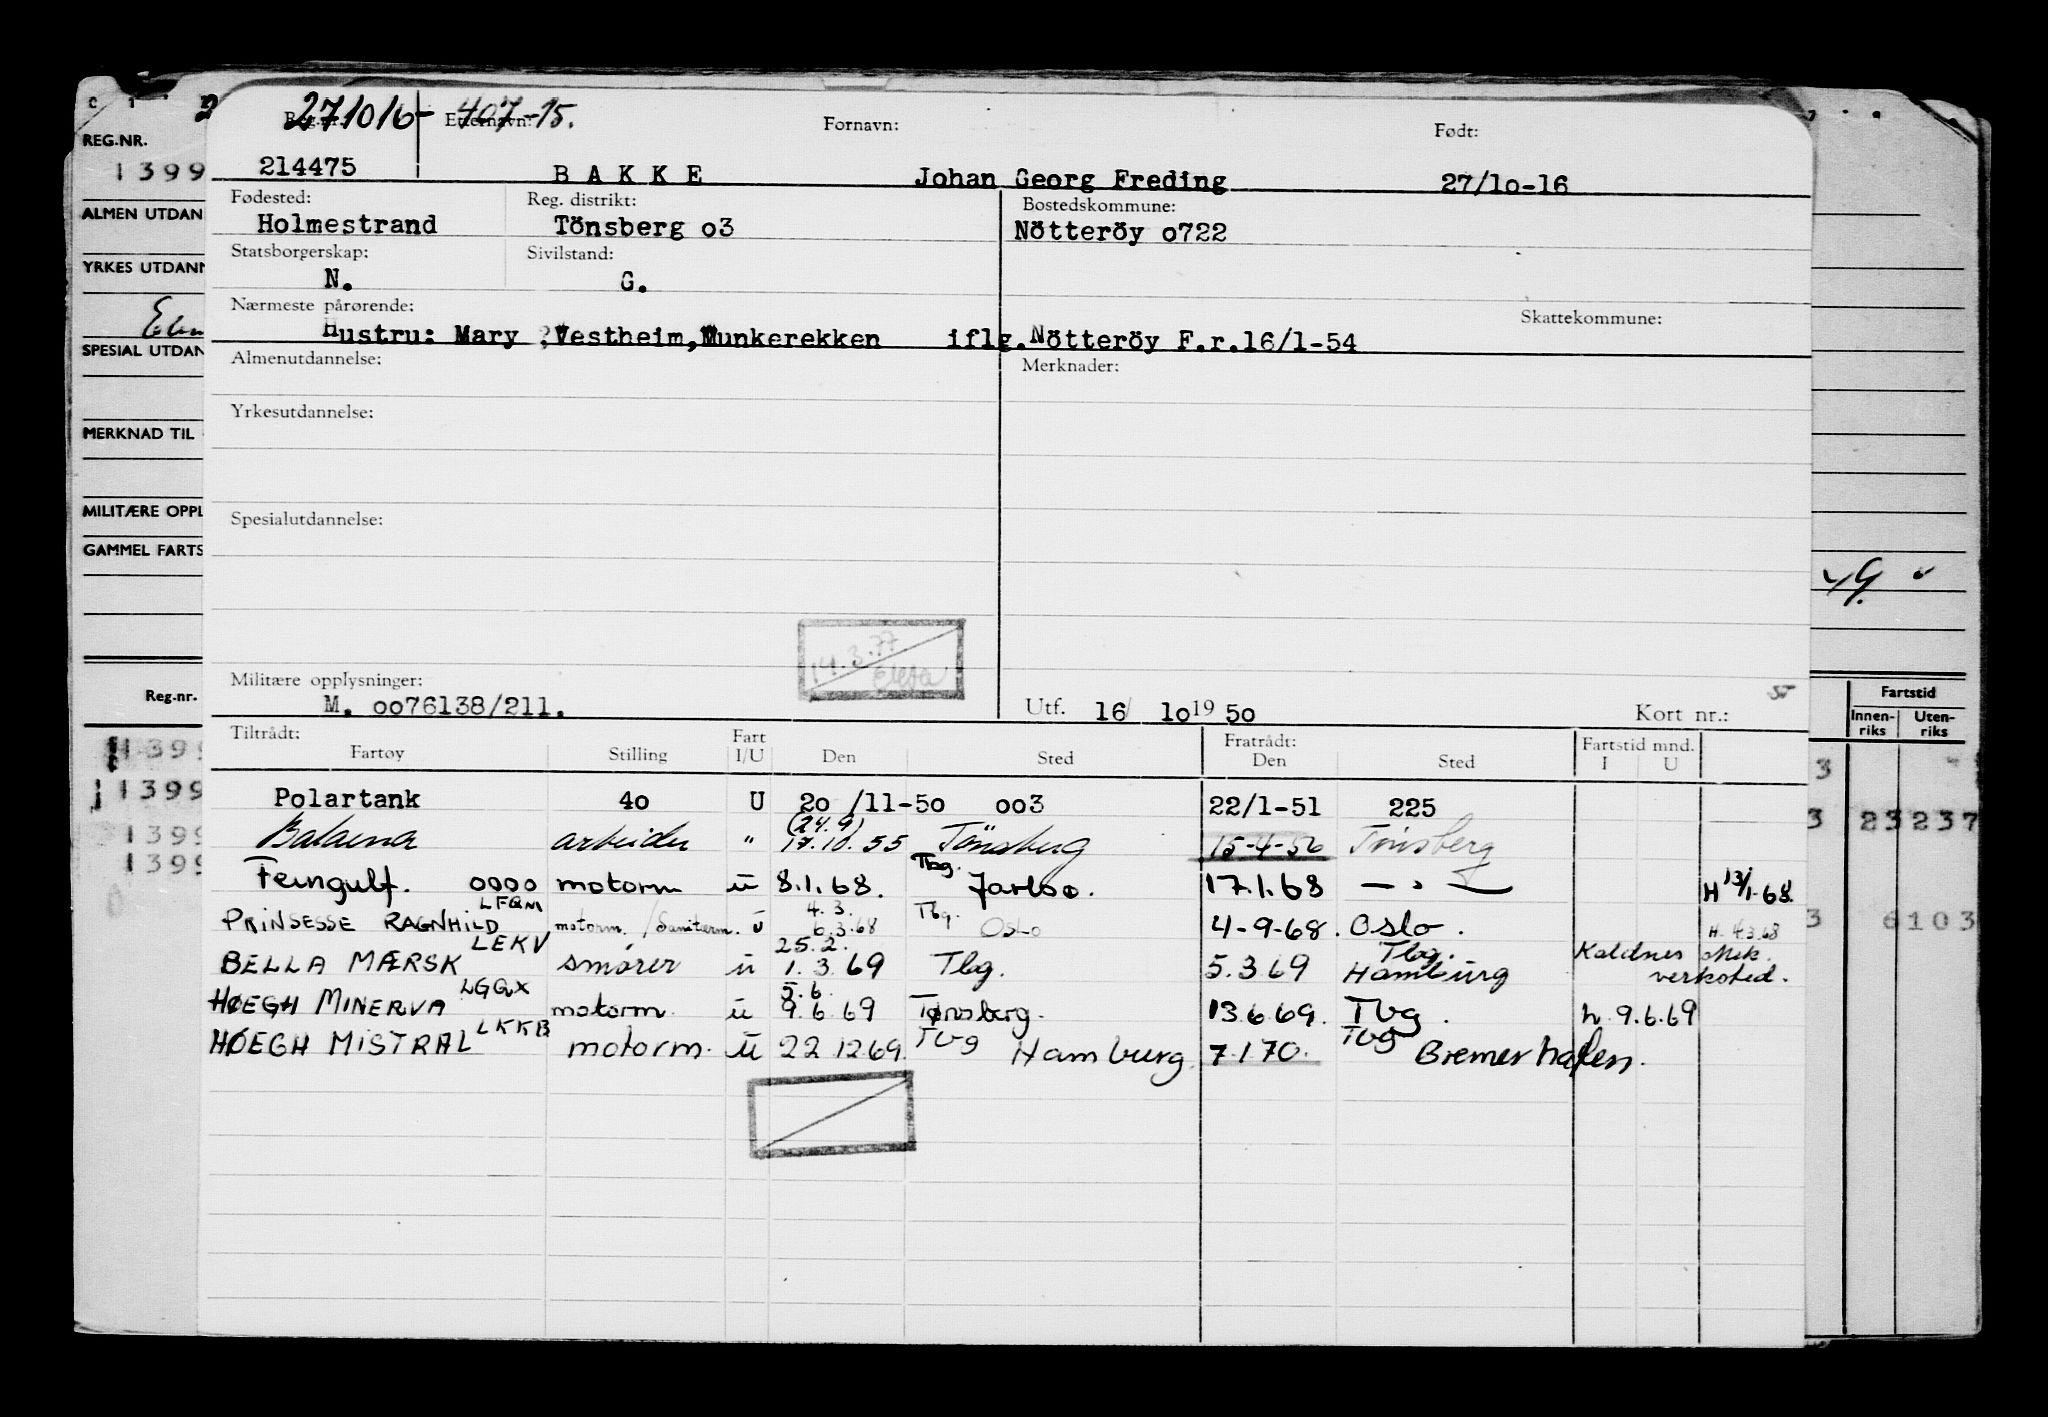 271016- 407-15.
Reg.nr. Etternavn: Fornavn: Født:
214475 BAKKE Johan Georg Freding 27/10-16
Fødested: Reg. distrikt: Bostedskommune:
Holmestrand Tönsberg o3 Nötteröy o722
Statsborgerskap: Sivilstand:
N. G.
Nærmeste pårørende: Skattekommune:
Hustru: Mary Vestheim, Munkerekken iflg. Nötteröy F.r.16/1-54
Almenutdannelse: Merknader:
Yrkesutdannelse:
Spesialutdannelse:
14.3.77
Militære opplysninger:
M. oo76138/211. Utf. 16/ 10 19 50 Kort nr.:
Tiltrådt: Fart Fratrådt: Fartstid mnd.
Fartøy Stilling I/U Den Sted Den Sted I U
Polartank 4o U 2o /11-5o oo3 22/1-51 225
(24.9)
Balaena arbeider " 17.10.55 Tönsberg 15-4-56 Tönsberg
Tbg.
Ferngulf. 0000 motorm u 8.1.68. Jarlsø. 17.1.68 — " — H 13/1-68.
LFQM 4.3. Tbg.
PRINSESSE RAGNHILD motorm. / U 6.3.68 Oslo 4-9-68. Oslo. H. 4.3.68
LEKV 25.2. Tbg. Kaldnes Mek.
BELLA MÆRSK smører u 1.3.69 Tbg. 5.3.69 Hamburg verksted.
LGQX 5.6.
HØEGH MINERVA motorm. u 9.6.69 Tønsberg. 13.6.69. Tbg. h. 9.6.69
LKKB Tbg Tbg
HØEGH MISTRAL motorm. U 22.12.69. Hamburg. 7.1.70. Bremerhafen.
REG.NR.
1399
ALMEN UTDAN
YRKES UTDANN
SPESIAL UTDAN
MERKNAD TIL
MILITÆRE OPPL
GAMMEL FARTS
Reg.-nr.
1399
1399
1399
1399
Fartstid
Innen- Uten-
riks riks
3
3 23237
3 6103